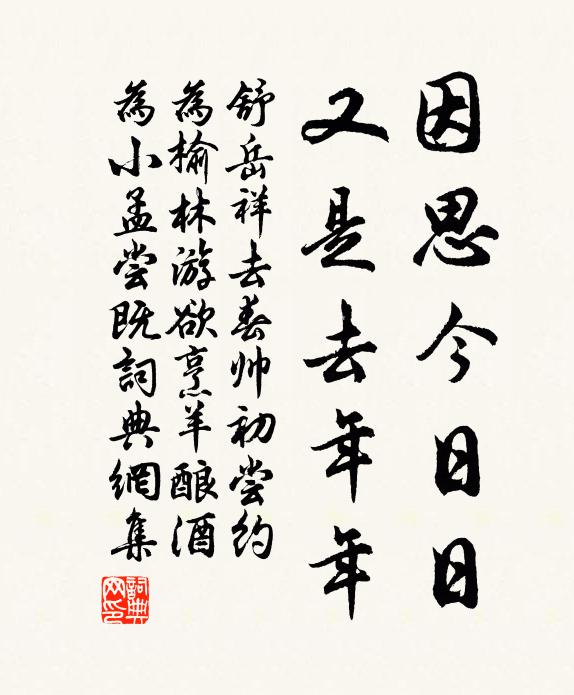 因思今日日
又是去年年
舒岳祥去春帅初尝约
為榆林游欲烹羊酿酒
為小孟尝既詞典網集
詞典网印